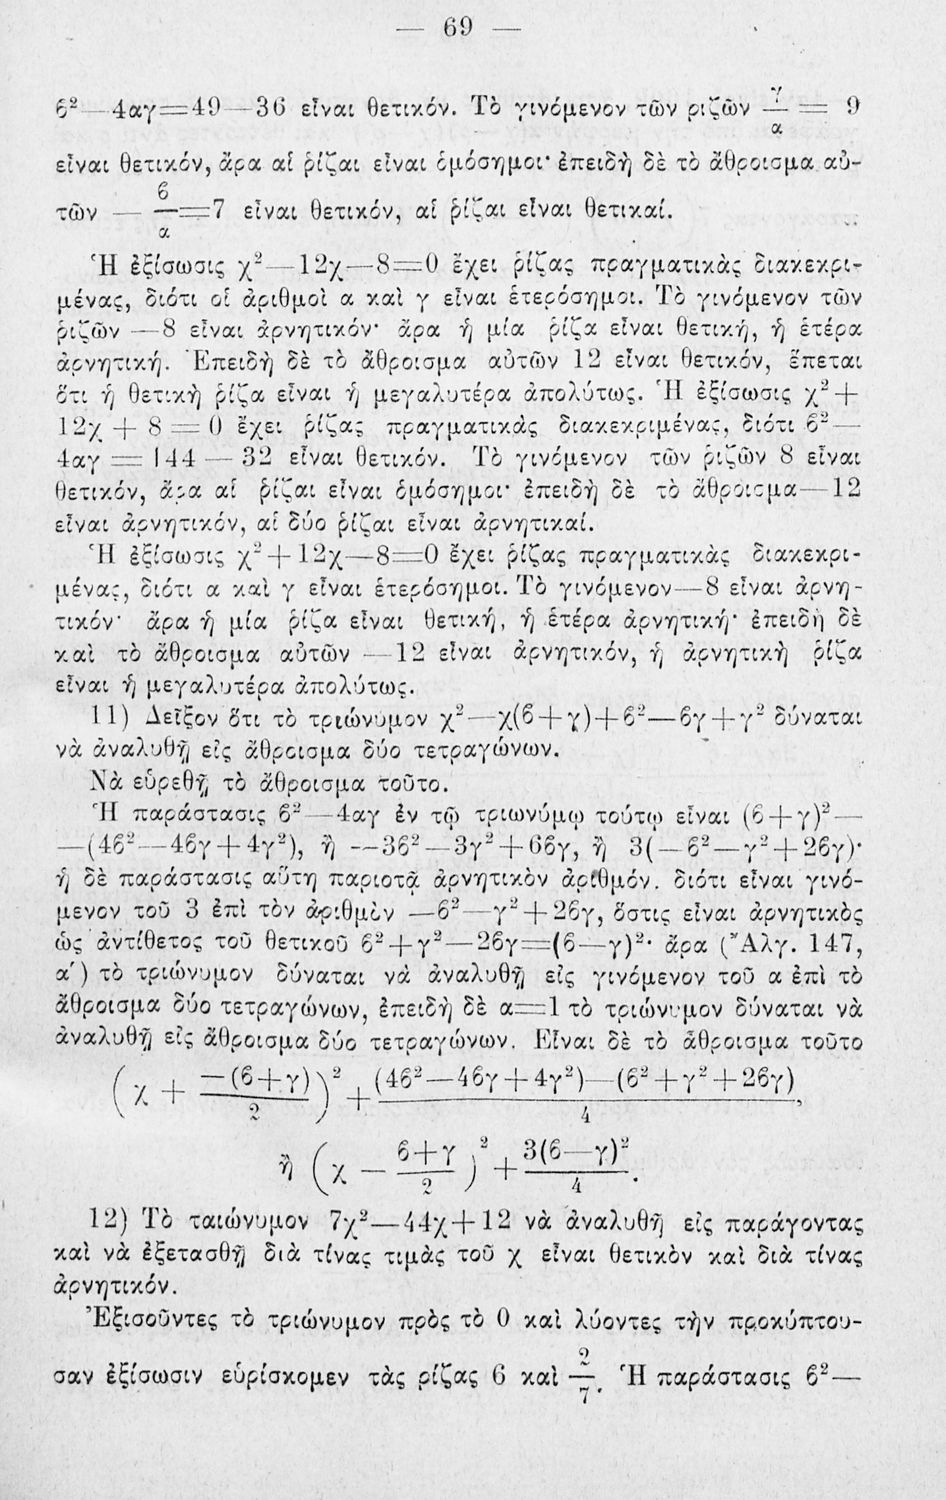 — 69 —
ϐ²—4αγ=49—36 εἶναι θετικόν. Τὸ γινόμενον τῶν ριζῶν γ/α = 9
εἶναι θετικόν, ἄρα αἱ ῥίζαι εἶναι ὁμόσημοι· ἐπειδὴ δὲ τὸ ἄθροισμα αὐ-
τῶν — ϐ/α=7 εἶναι θετικόν, αἱ ῥίζαι εἶναι θετικαί.
Ἡ ἐξίσωσις χ²—12χ—8=0 ἔχει ῥίζας πραγματικὰς διακεκρι-
μένας, διότι οἱ ἀριθμοὶ α καὶ γ εἶναι ἑτερόσημοι. Τὸ γινόμενον τῶν
ῥιζῶν —8 εἶναι ἀρνητικόν· ἄρα ἡ μία ῥίζα εἶναι θετική, ἡ ἑτέρα
ἀρνητική. Ἐπειδὴ δὲ τὸ ἄθροισμα αὐτῶν 12 εἶναι θετικόν, ἕπεται
ὅτι ἡ θετικὴ ῥίζα εἶναι ἡ μεγαλυτέρα ἀπολύτως. Ἡ ἐξίσωσις χ²+
12χ + 8 = 0 ἔχει ῥίζας πραγματικὰς διακεκριμένας, διότι ϐ²—
4αγ = 144 — 32 εἶναι θετικόν. Τὸ γινόμενον τῶν ῥιζῶν 8 εἶναι
θετικόν, ἄρα αἱ ῥίζαι εἶναι ὁμόσημοι· ἐπειδὴ δὲ τὸ ἄθροισμα—12
εἶναι ἀρνητικόν, αἱ δύο ῥίζαι εἶναι ἀρνητικαί.
Ἡ ἐξίσωσις χ²+12χ—8=0 ἔχει ῥίζας πραγματικὰς διακεκρι-
μένας, διότι α καὶ γ εἶναι ἑτερόσημοι. Τὸ γινόμενον—8 εἶναι ἀρνη-
τικόν· ἄρα ἡ μία ῥίζα εἶναι θετική, ἡ ἑτέρα ἀρνητική· ἐπειδὴ δὲ
καὶ τὸ ἄθροισμα αὐτῶν —12 εἶναι ἀρνητικόν, ἡ ἀρνητικὴ ῥίζα
εἶναι ἡ μεγαλυτέρα ἀπολύτως.
11) Δεῖξον ὅτι τὸ τριώνυμον χ²—χ(ϐ+γ)+ϐ²—ϐγ+γ² δύναται
νὰ ἀναλυθῇ εἰς ἄθροισμα δύο τετραγώνων.
Νὰ εὑρεθῇ τὸ ἄθροισμα τοῦτο.
Ἡ παράστασις ϐ²—4αγ ἐν τῷ τριωνύμῳ τούτῳ εἶναι (ϐ+γ)²—
—(4ϐ²—4ϐγ+4γ²), ἢ —3ϐ²—3γ²+6ϐγ, ἢ 3(—ϐ²—γ²+2ϐγ)·
ἡ δὲ παράστασις αὕτη παριστᾷ ἀρνητικὸν ἀριθμόν. διότι εἶναι γινό-
μενον τοῦ 3 ἐπὶ τὸν ἀριθμὸν —ϐ²—γ²+2ϐγ, ὅστις εἶναι ἀρνητικὸς
ὡς ἀντίθετος τοῦ θετικοῦ ϐ²+γ²—2ϐγ=(ϐ—γ)²· ἄρα (Ἄλγ. 147,
α΄) τὸ τριώνυμον δύναται νὰ ἀναλυθῇ εἰς γινόμενον τοῦ α ἐπὶ τὸ
ἄθροισμα δύο τετραγώνων, ἐπειδὴ δὲ α=1 τὸ τριώνυμον δύναται νὰ
ἀναλυθῇ εἰς ἄθροισμα δύο τετραγώνων. Εἶναι δὲ τὸ ἄθροισμα τοῦτο
(χ + —(ϐ+γ)/2)² + (4ϐ²—4ϐγ+4γ²)—(ϐ²+γ²+2ϐγ)/4,
ἢ (χ — ϐ+γ/2)² + 3(ϐ—γ)²/4.
12) Τὸ ταιώνυμον 7χ²—44χ+12 νὰ ἀναλυθῇ εἰς παράγοντας
καὶ νὰ ἐξετασθῇ διὰ τίνας τιμὰς τοῦ χ εἶναι θετικὸν καὶ διὰ τίνας
ἀρνητικόν.
Ἐξισοῦντες τὸ τριώνυμον πρὸς τὸ 0 καὶ λύοντες τὴν προκύπτου-
σαν ἐξίσωσιν εὑρίσκομεν τὰς ρίζας 6 καὶ 2/7. Ἡ παράστασις ϐ²—